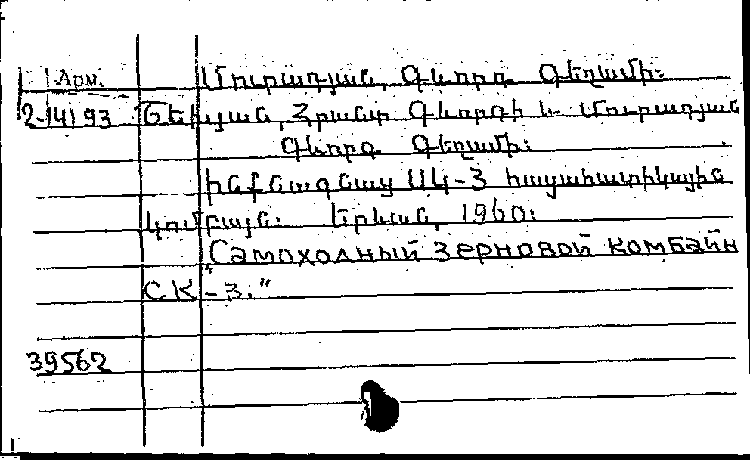 Арм. Մուրադյան, Գևորգ Գեղամի։
2-14193 Շեխյան, Հրանտ Գևորգի և Մուրադյան
Գևորգ Գեղամի։
Ինքնագնաց ՍԿ-3 հացահատիկային
կոմբայն։ Երևան, 1960։
"Самоходный зерновой комбайн
СК-3."
39562